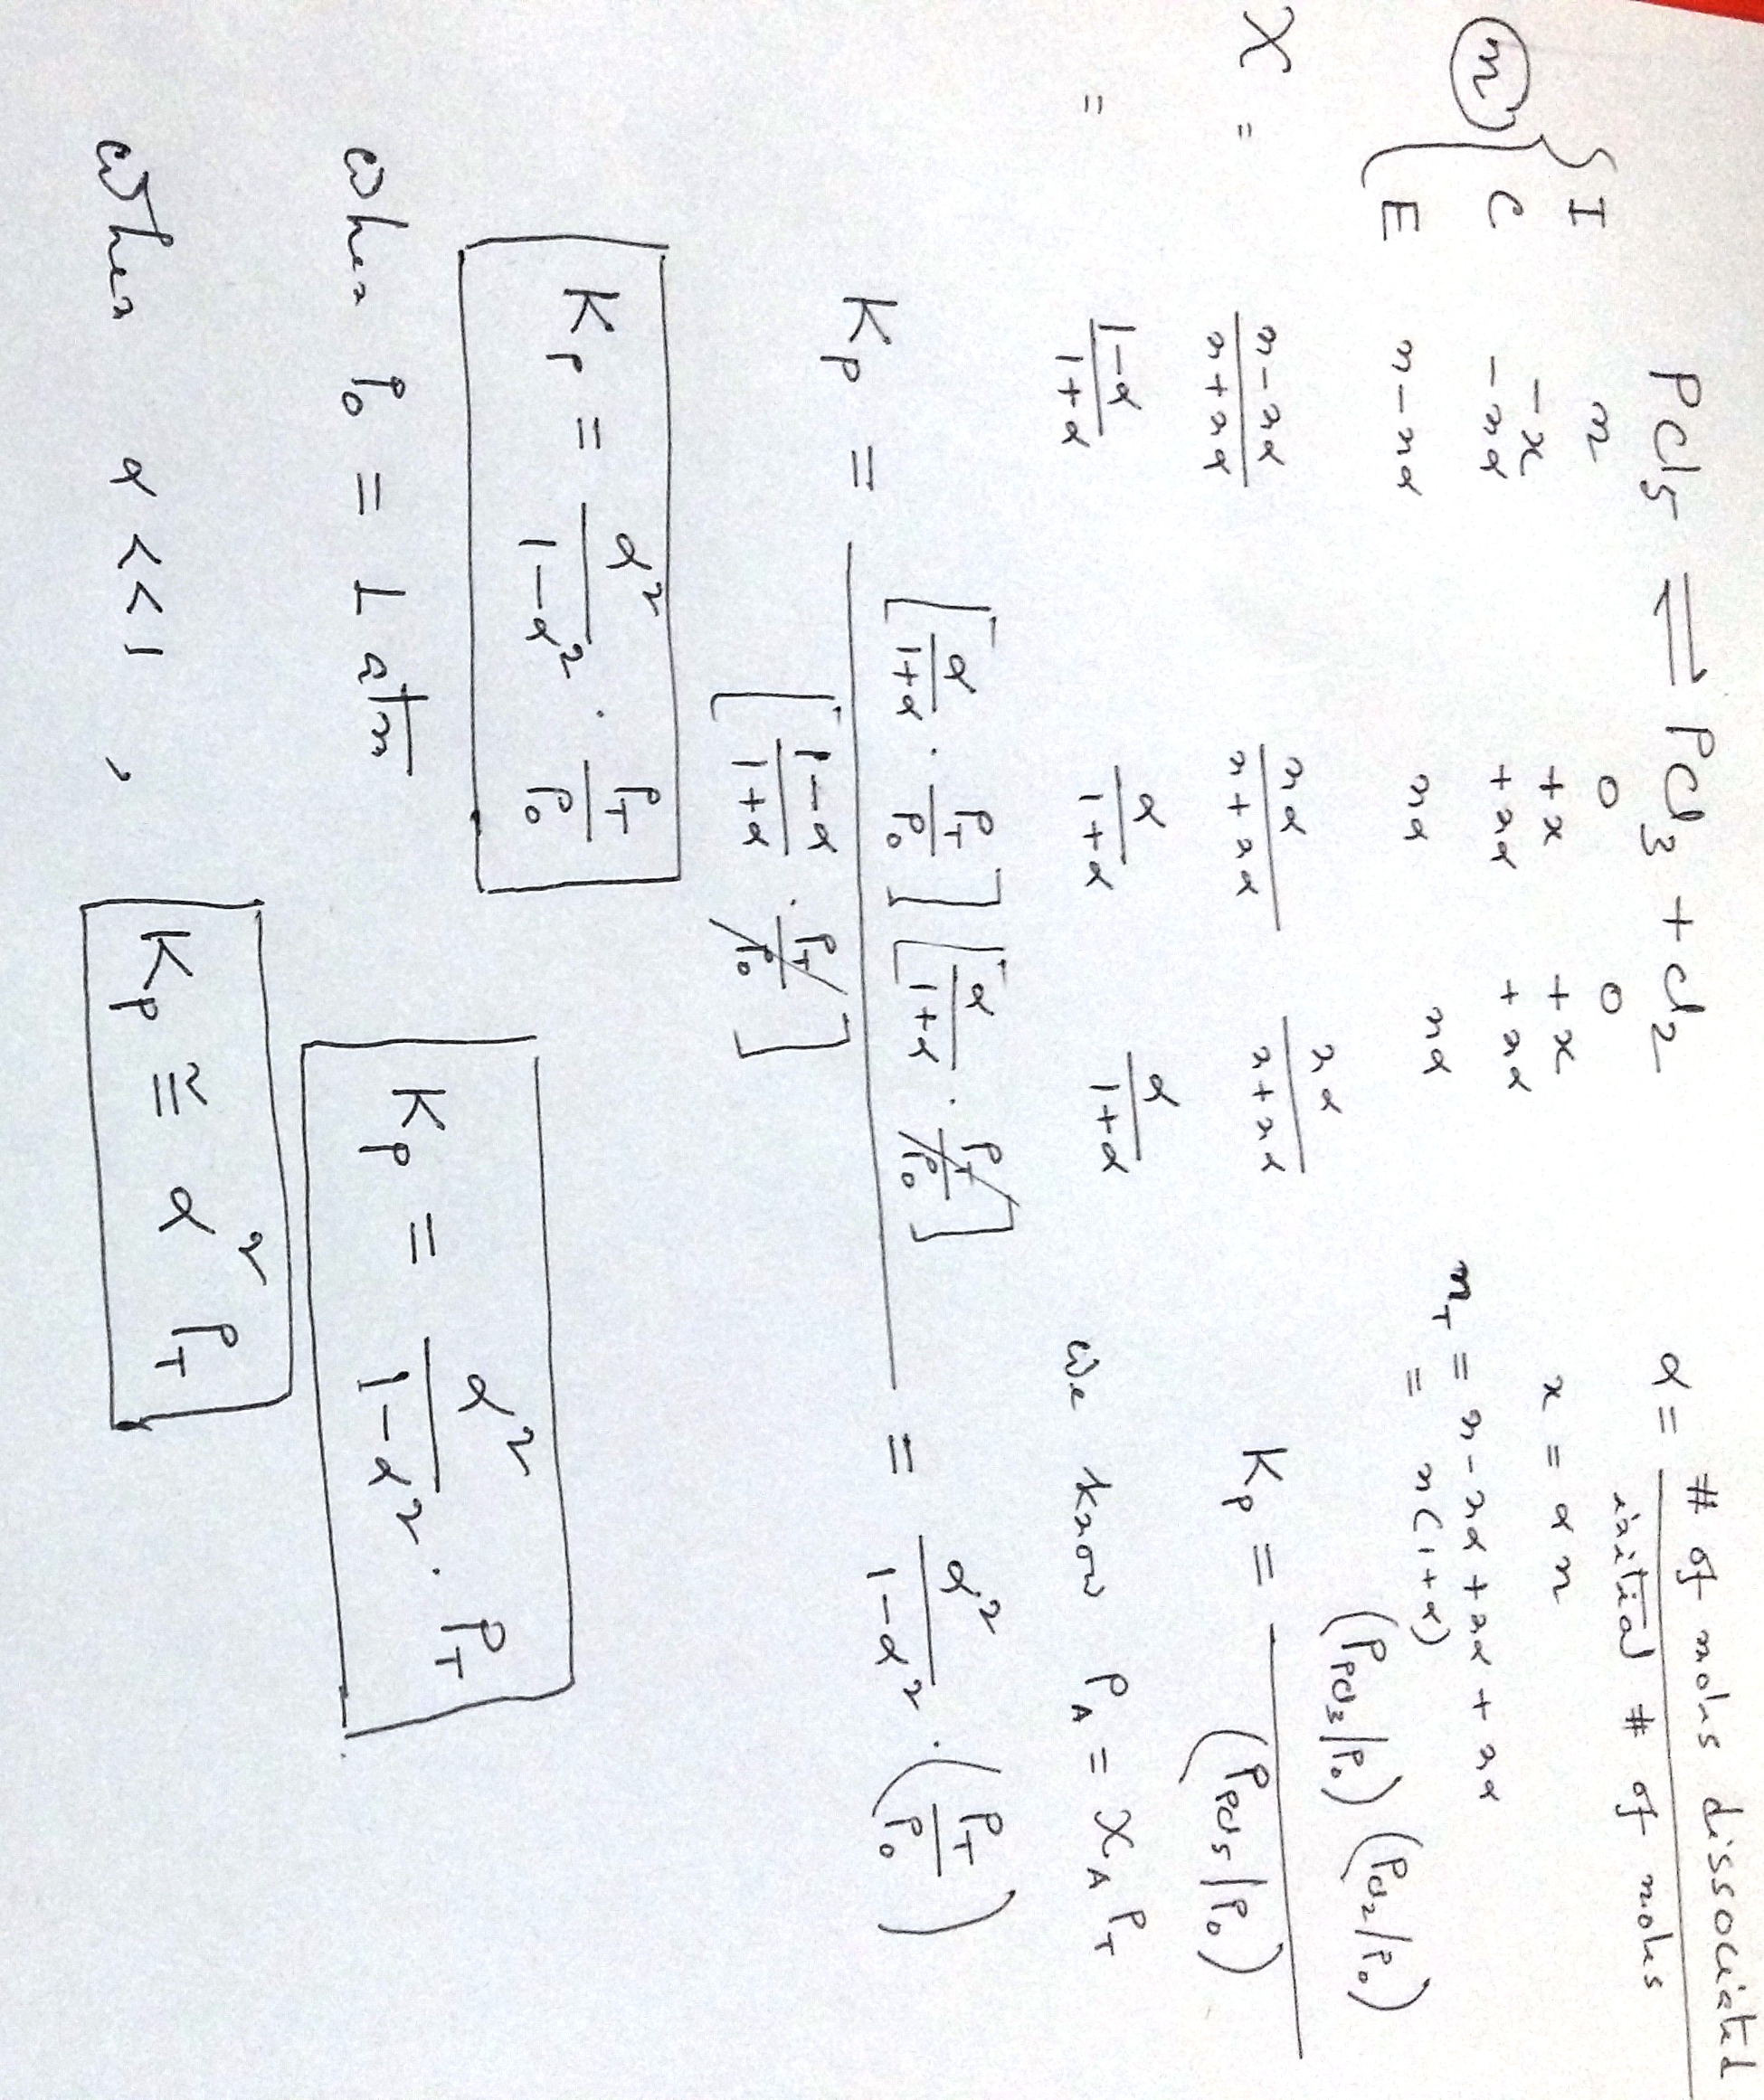 PCl5 ⇌ PCl3 + Cl2
α = # of moles dissociated / initial # of moles
I n 0 0
C -x +x +x
x = αn
(n) -nα +nα +nα
E n-nα nα nα
n_T = n-nα+nα+nα
= n(1+α)
X = (n-nα)/(n+nα) nα/(n+nα) nα/(n+nα)
K_P = (P_PCl3/P_0)(P_Cl2/P_0) / (P_PCl5/P_0)
= (1-α)/(1+α) α/(1+α) α/(1+α)
we know P_A = X_A P_T
K_P = [α/(1+α) · P_T/P_0][α/(1+α) · P_T/P_0] / [(1-α)/(1+α) · P_T/P_0] = α²/(1-α²) · (P_T/P_0)
K_P = α²/(1-α²) · P_T/P_0
when P_0 = 1 atm
K_P = α²/(1-α²) · P_T
When α << 1 ,
K_P ≅ α² P_T